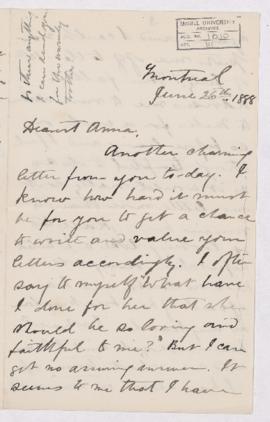 McGILL UNIVERSITY
ARCHIVES
ACC. NO. 1010
Is there anything
I can do
for
Montreal
June 26th, 1888
Dearest Anna,
Another charming
letter from you to-day. I
know how hard it must
be for you to get a chance
to write and value your
letters accordingly. I often
say to myself "What have
I done for her that she
should be so loving and
faithful to me?" But I can
get no answer. It
seems to me that I have